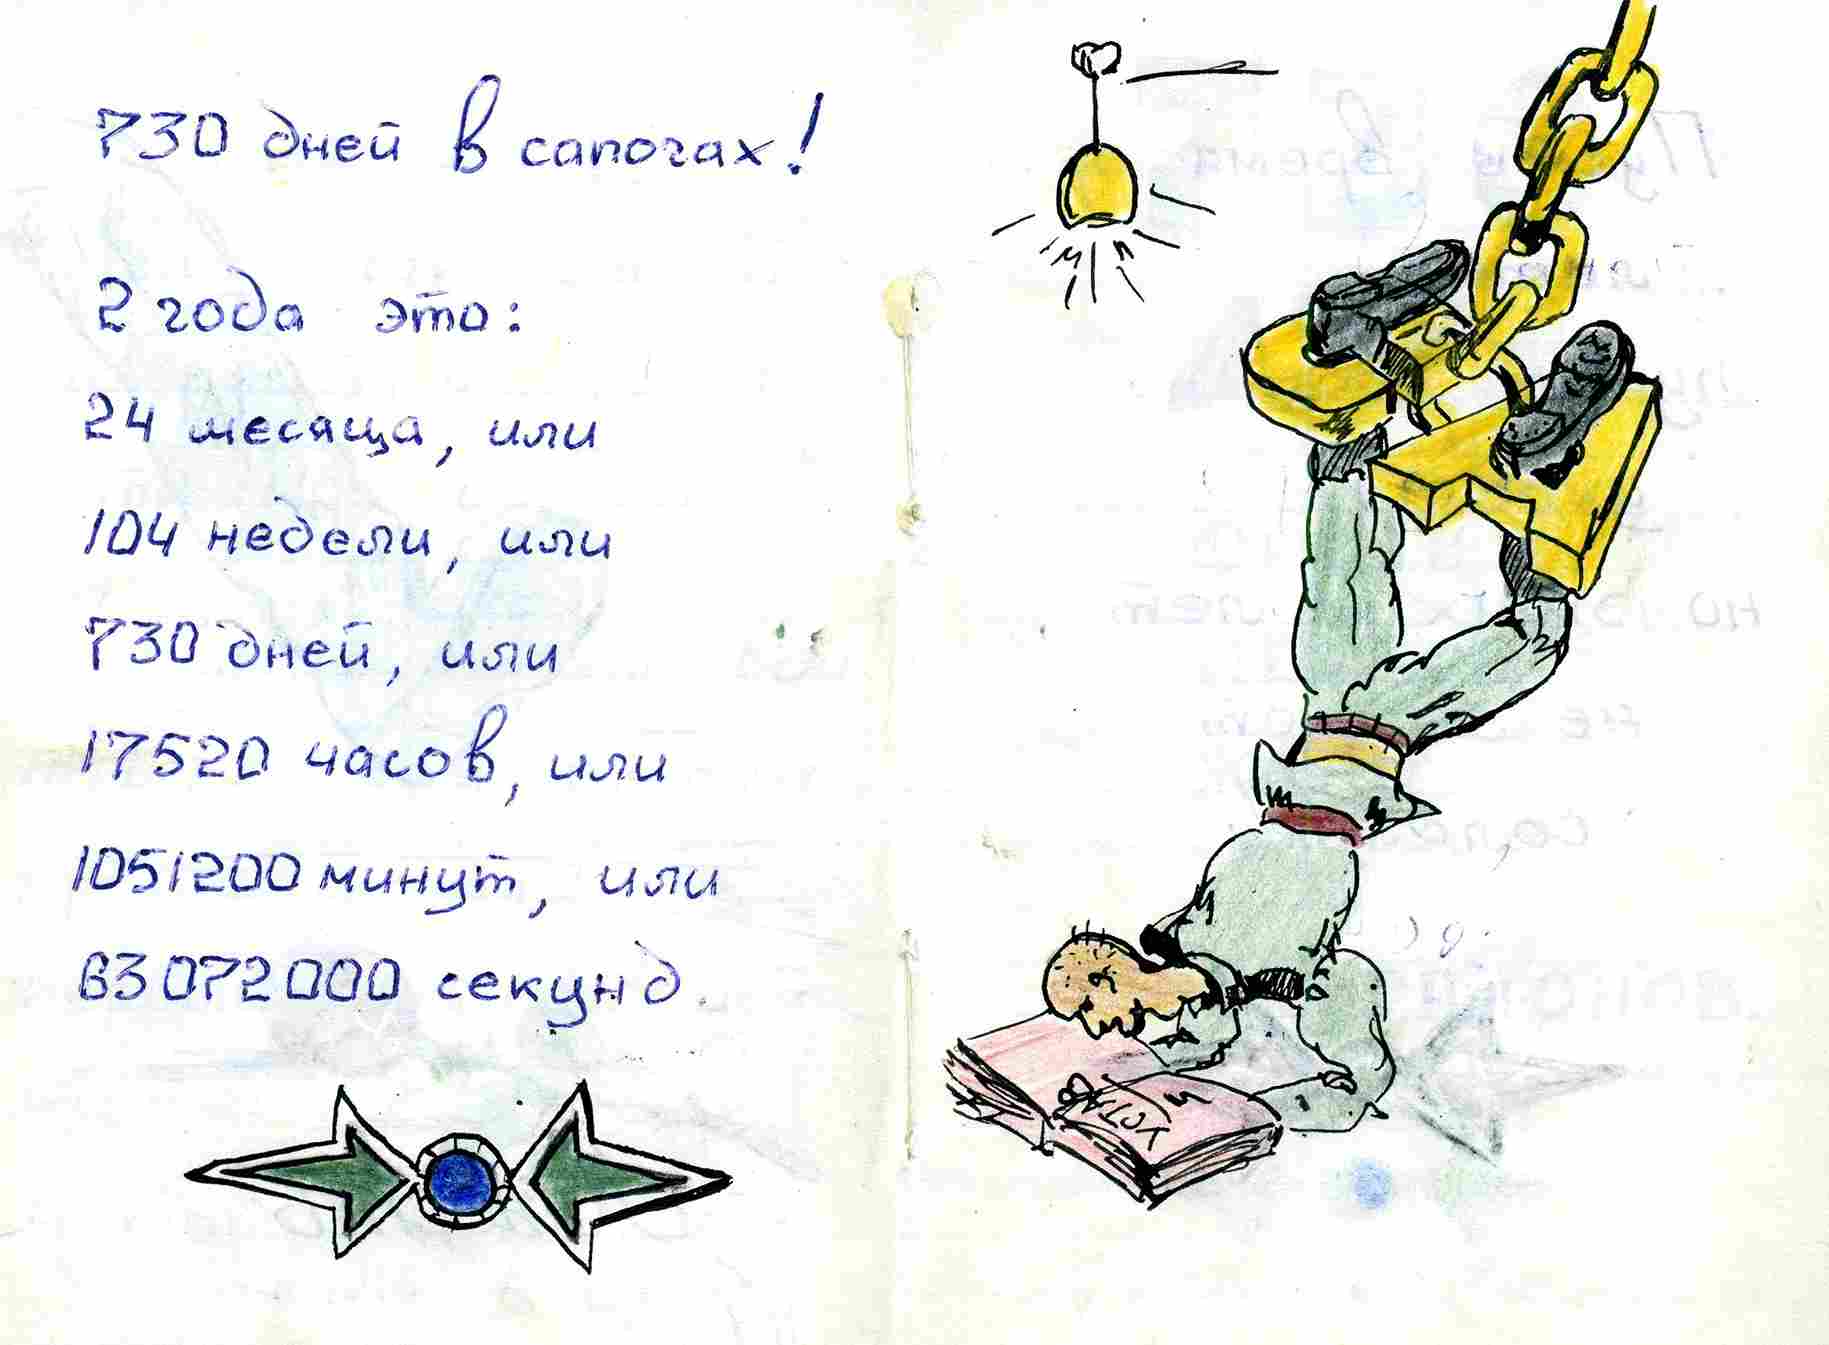 730 дней в сапогах!
2 года это:
24 месяца, или
104 недели, или
730 дней, или
17520 часов, или
1051200 минут, или
63072000 секунд.